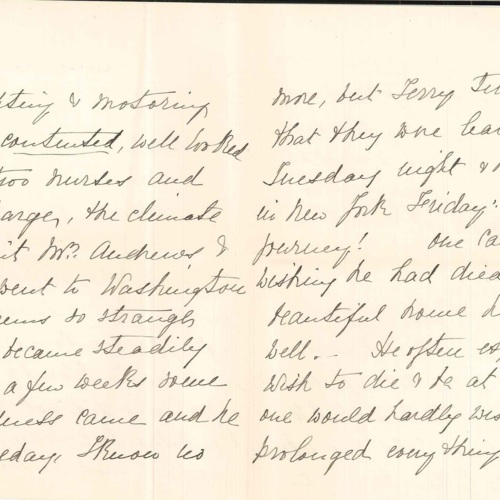 & motoring
contented, well looked
nurses and
the climate
Mrs. Andrews &
went to Washington
so strange
became steadily
a few weeks some
came and he
I know no
more, but Terry
that they were
Tuesday night &
in New York Friday
journey! one
wishing he had died
beautiful home
well. — He often
wish to die & be at
one would hardly
prolonged everything